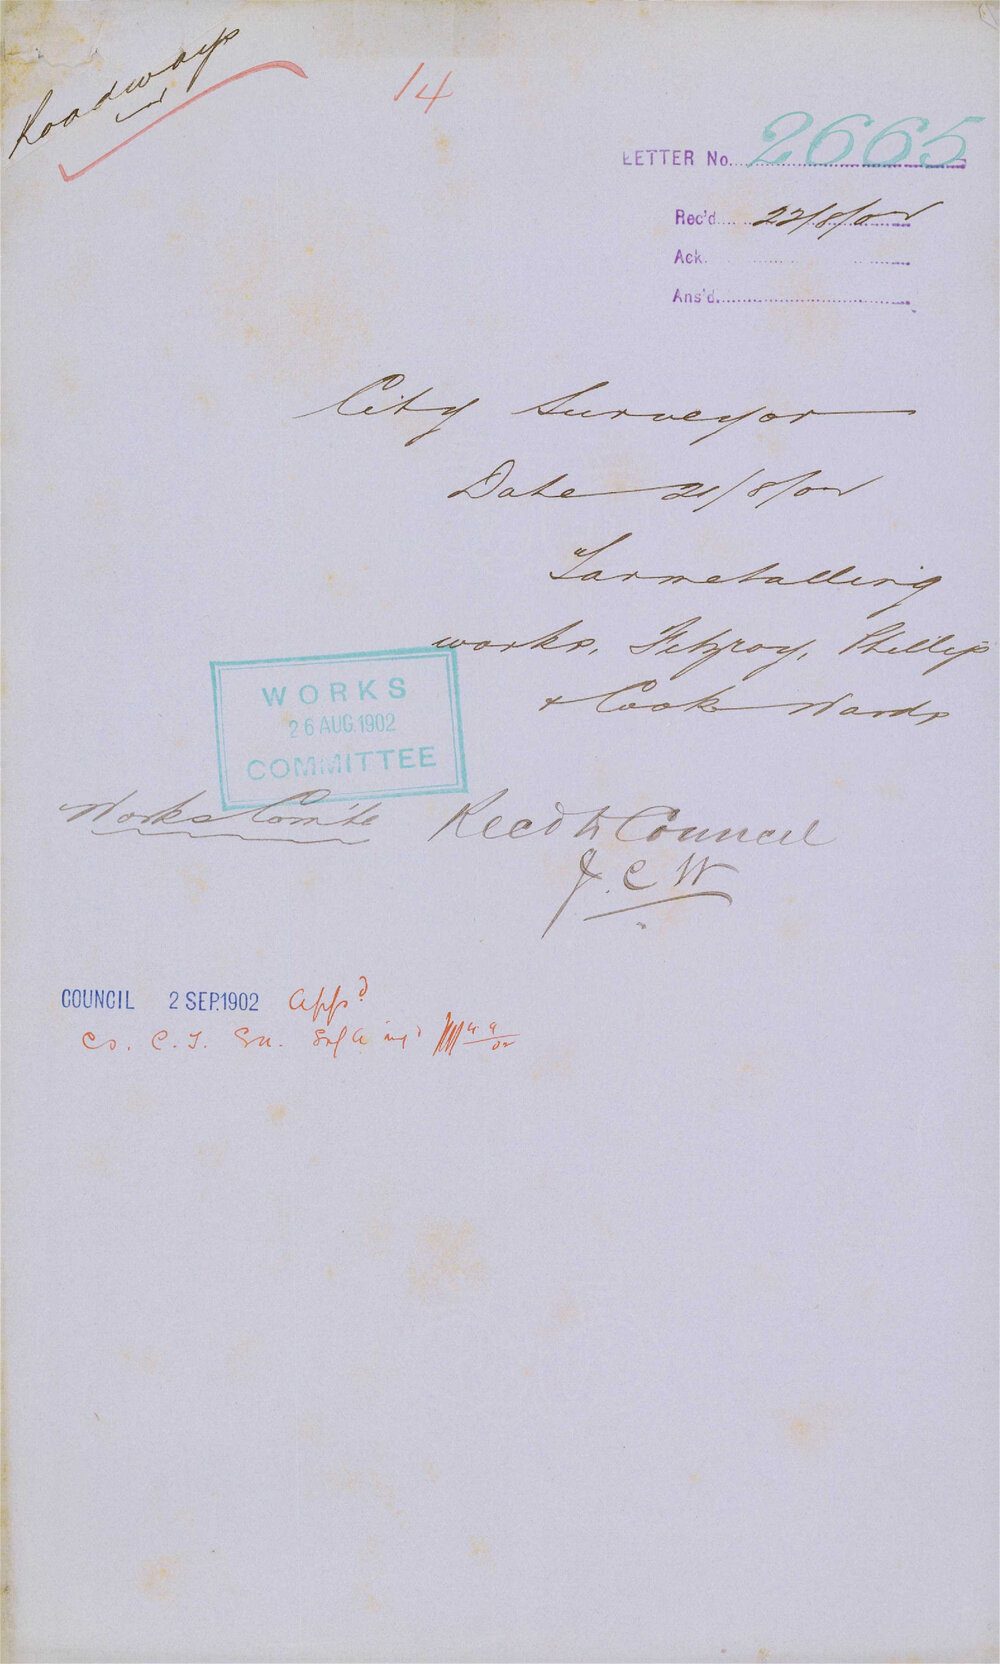 Roadways
14
LETTER No. 2665
Rec'd 22/8/02
Ack.
Ans'd.
City Surveyor
Date 21/8/02
Tarmetalling
works, Fitzroy, Phillip
& Cook Wards
WORKS
26 AUG. 1902
COMMITTEE
Works Com'tee Recd to Council
J.C.W
COUNCIL 2 SEP.1902 appd
Cs. C.T. Su.